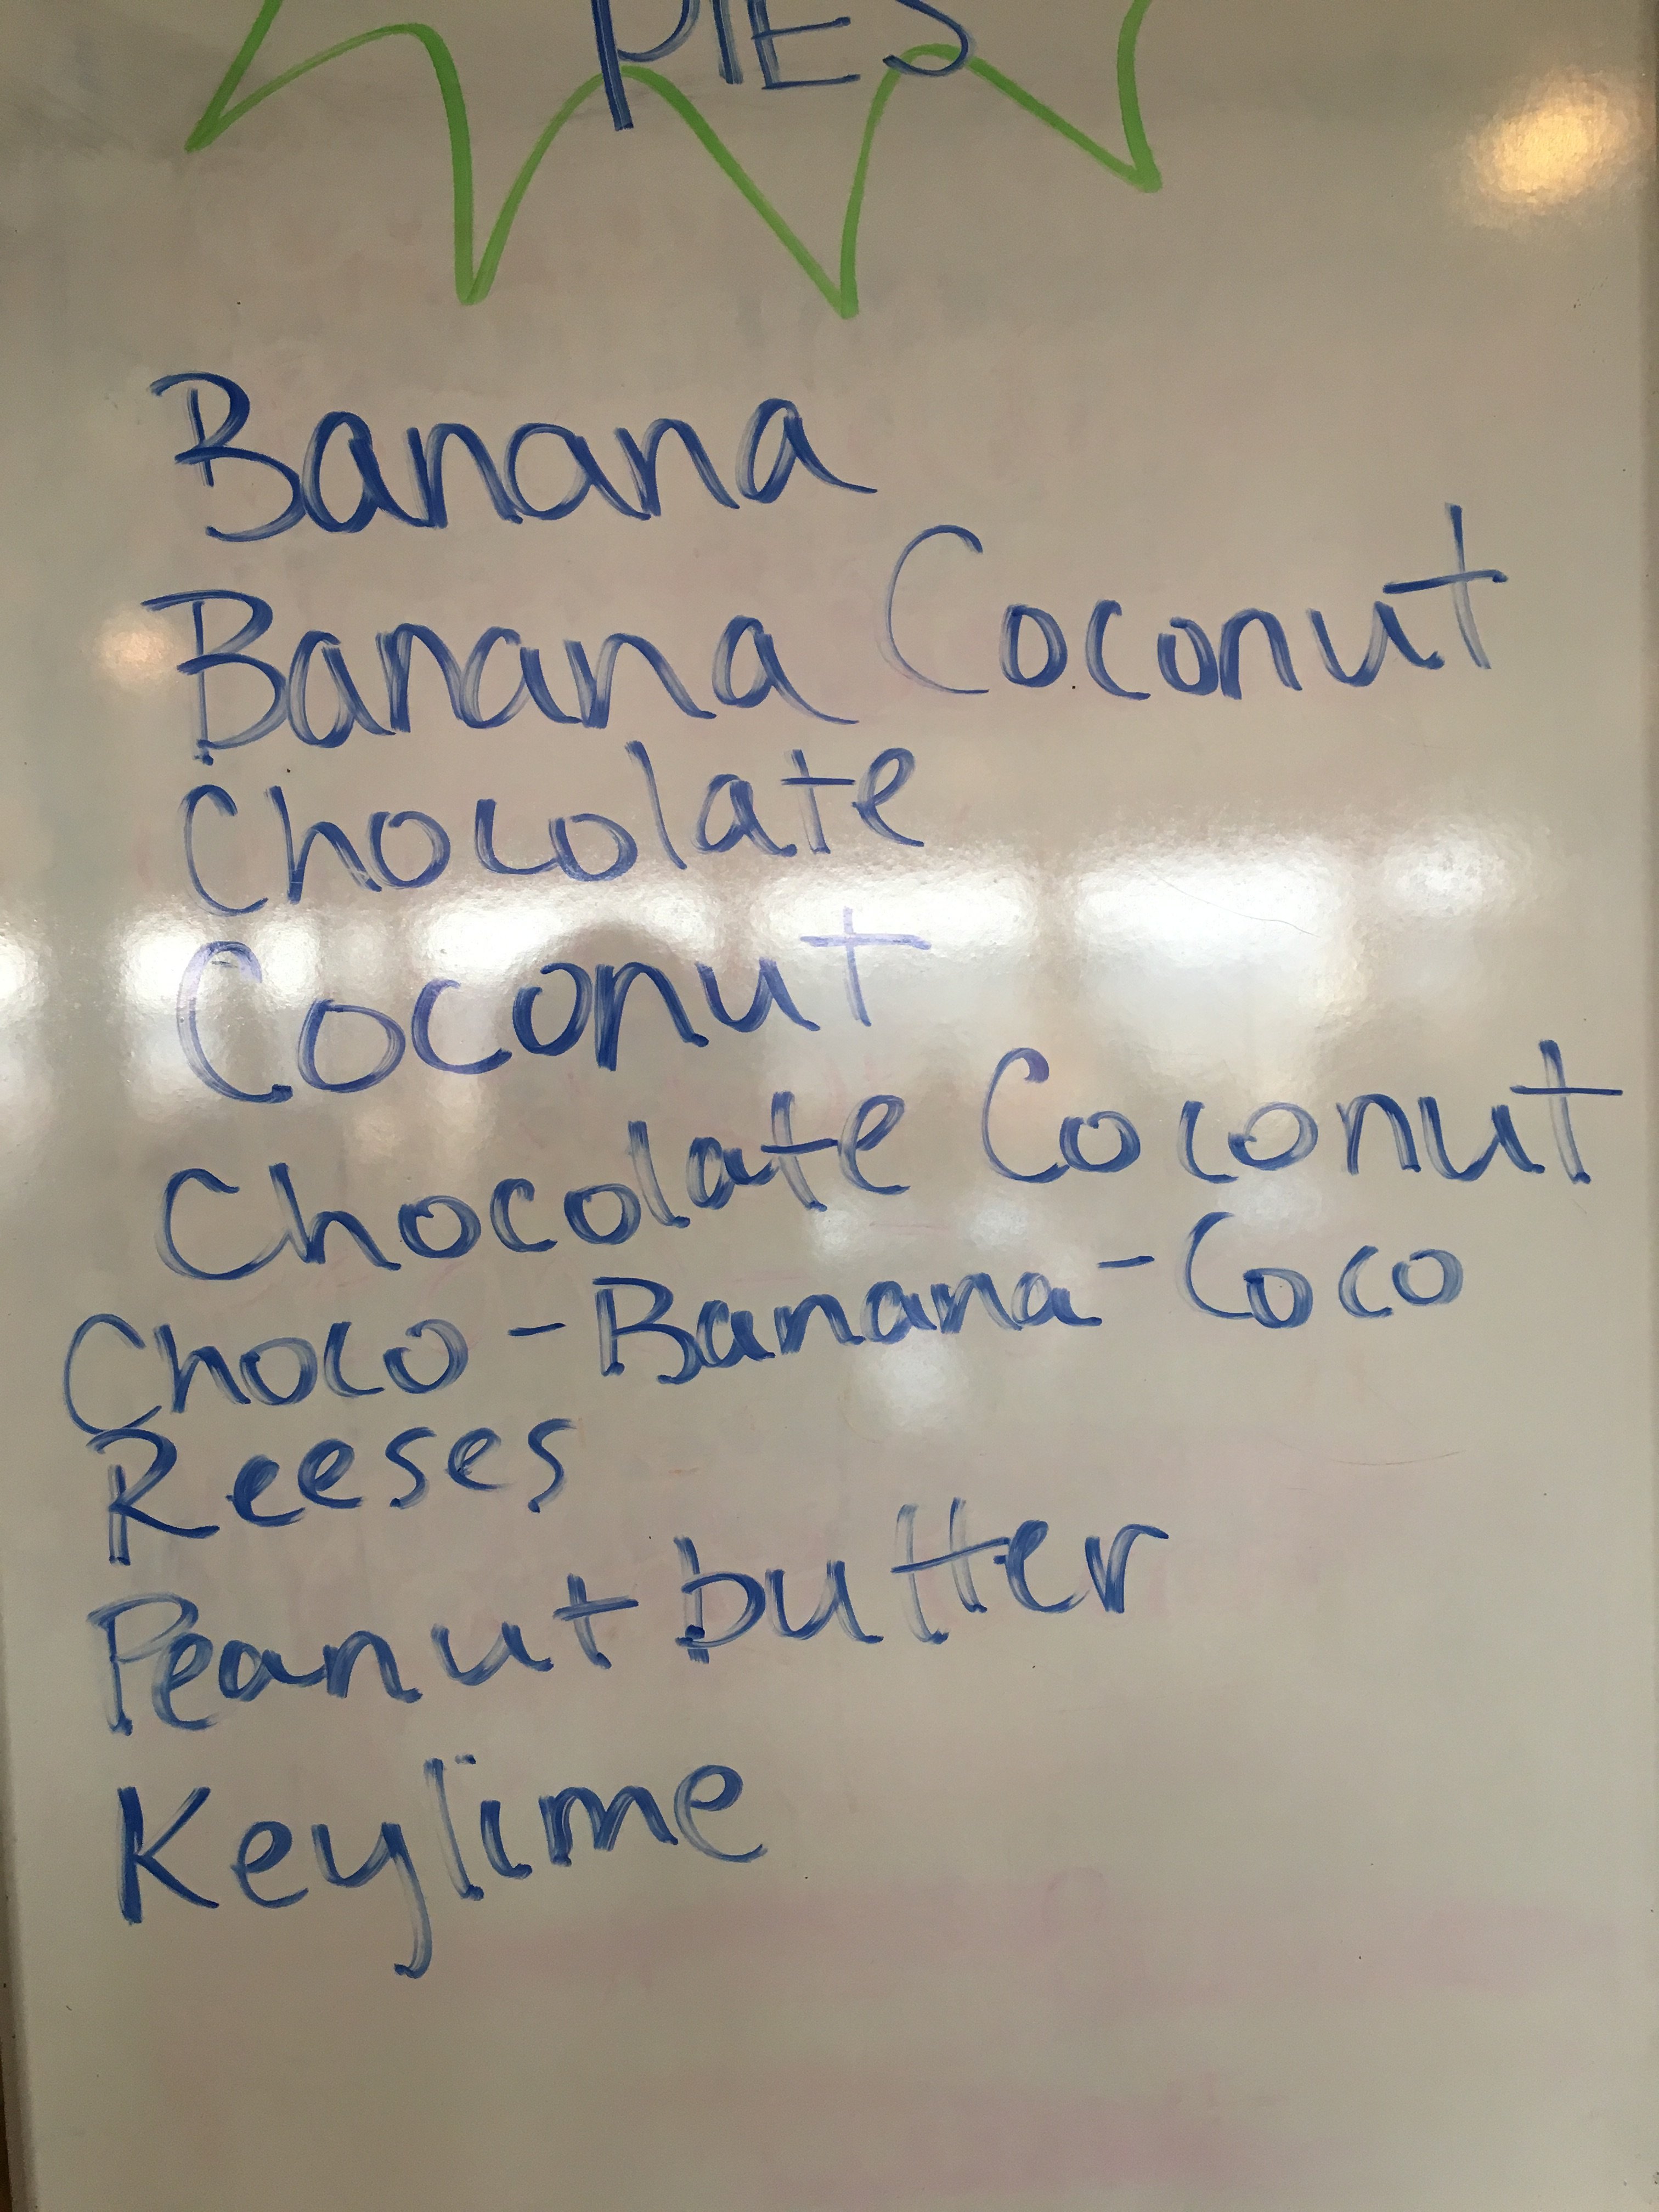 PIES
Banana
Banana Coconut
Chocolate
Coconut
Chocolate Coconut
Choco-Banana-Coco
Reeses
Peanut butter
Keylime